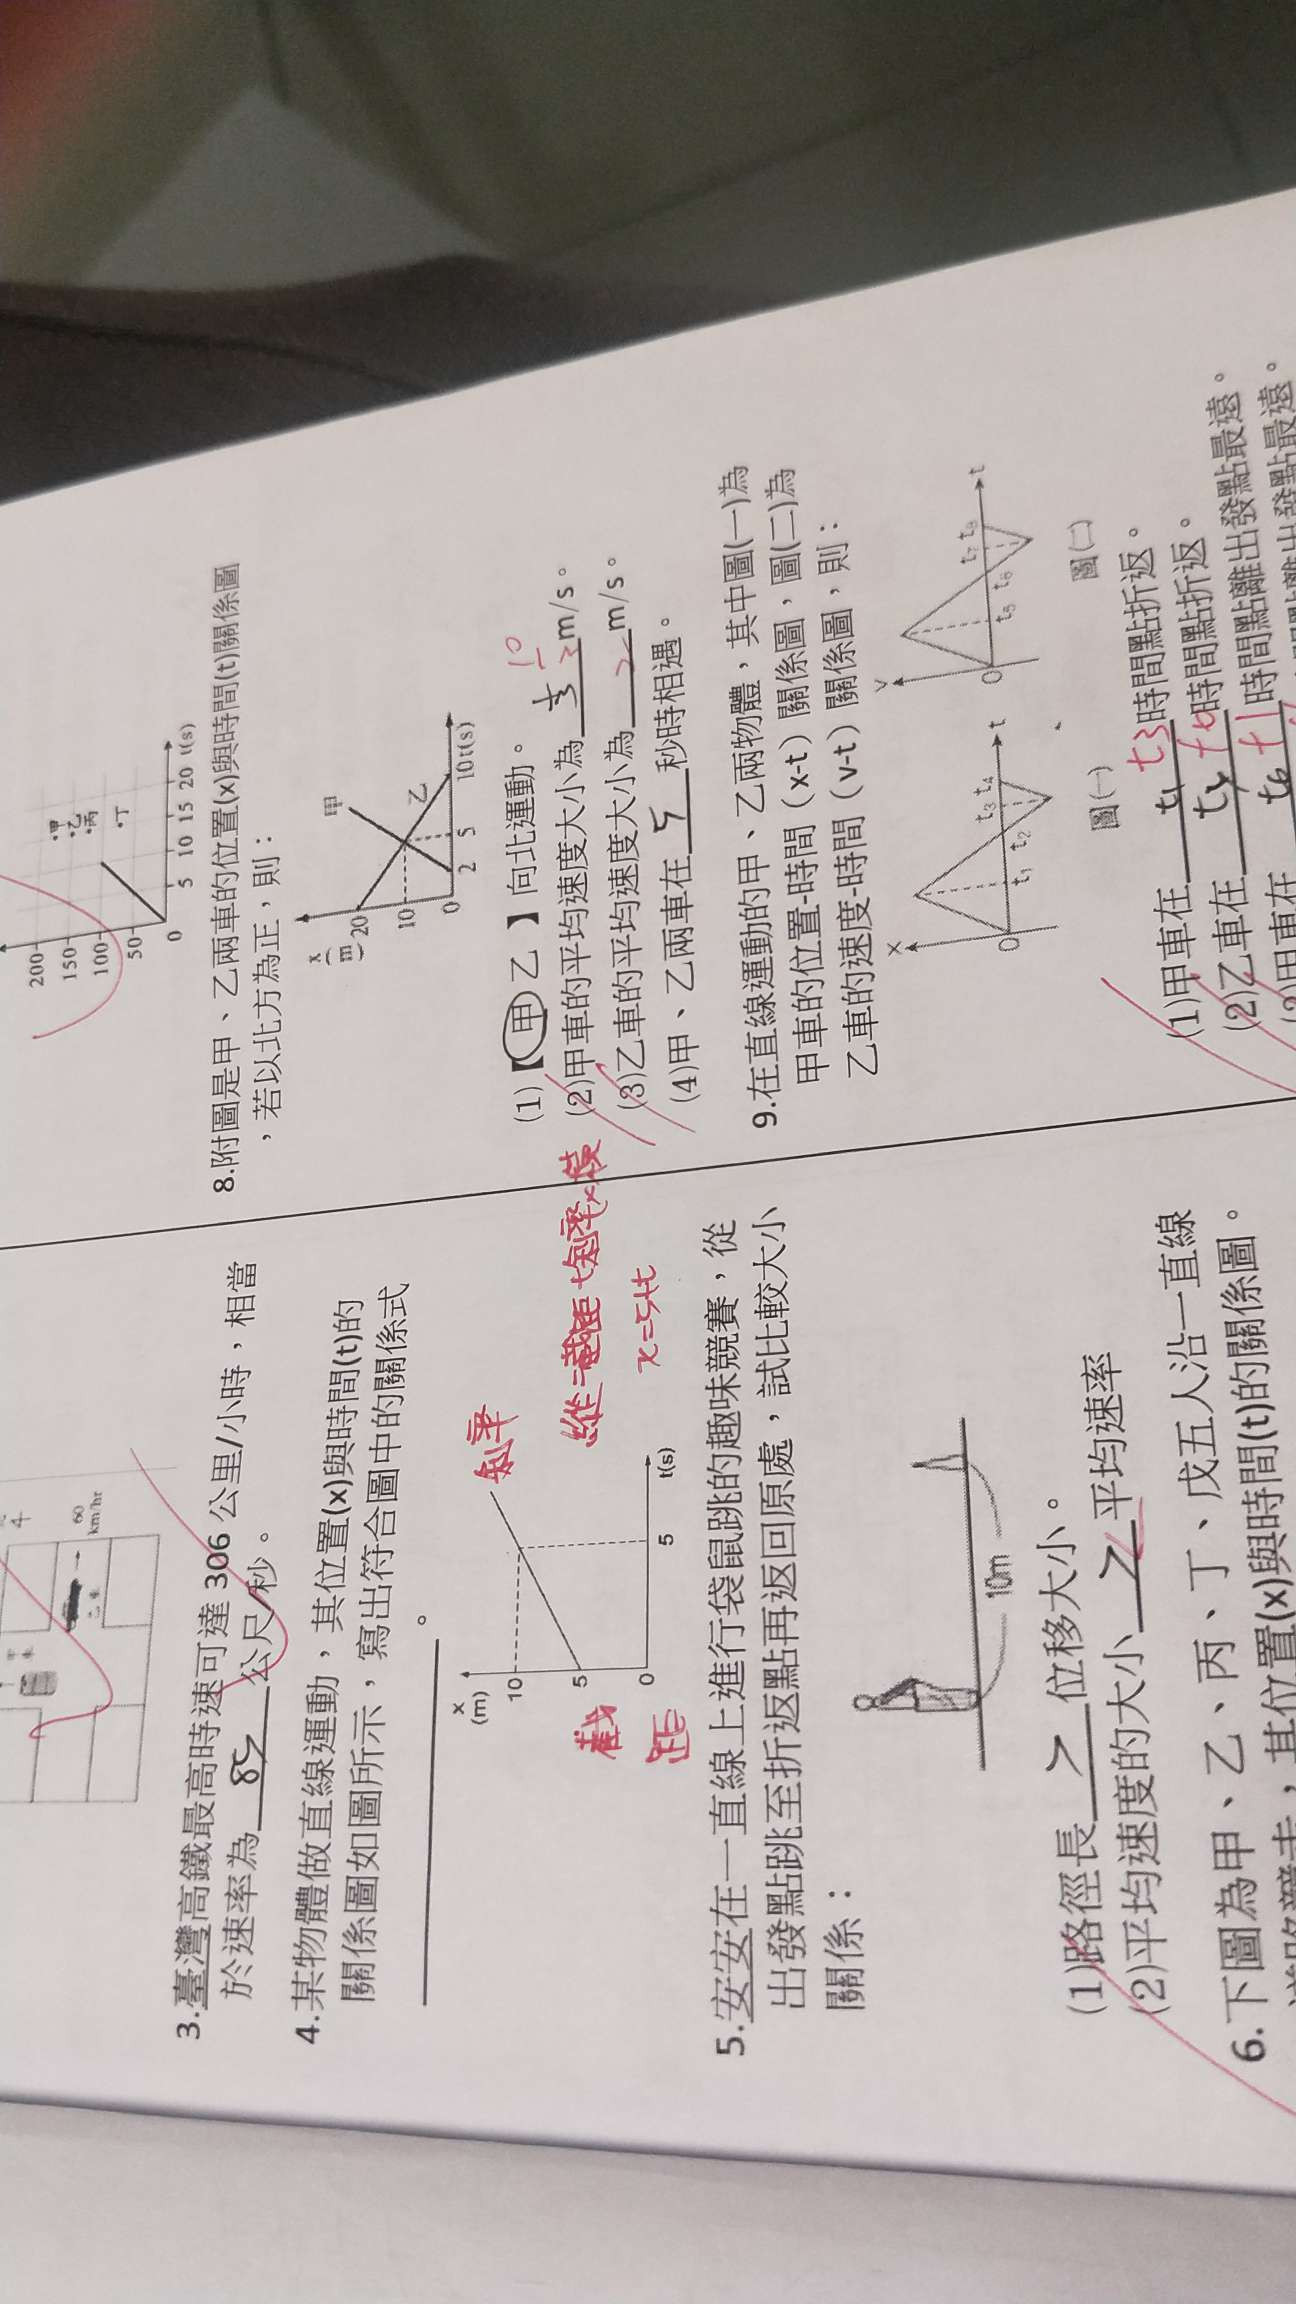 60
km/hr
3.臺灣高鐵最高時速可達 306 公里/小時，相當
於速率為 85 公尺/秒。
4.某物體做直線運動，其位置(x)與時間(t)的
關係圖如圖所示，寫出符合圖中的關係式
。
x
(m)
10
5
0
5
t(s)
斜率
截
距
縱=截距+斜率×橫
x=5+t
5.安安在一直線上進行袋鼠跳的趣味競賽，從
出發點跳至折返點再返回原處，試比較大小
關係：
10m
(1)路徑長 > 位移大小。
(2)平均速度的大小 平均速率
6.下圖為甲、乙、丙、丁、戊五人沿一直線
，其位置(x)與時間(t)的關係圖。
200
150
100
50
0
5 10 15 20 t(s)
甲
乙
丙
丁
8.附圖是甲、乙兩車的位置(x)與時間(t)關係圖
，若以北方為正，則：
x
(m)
20
10
0
2 5 10 t(s)
甲
乙
(1)【甲 乙 】向北運動。
(2)甲車的平均速度大小為 10/3 m/s。
(3)乙車的平均速度大小為 2 m/s。
(4)甲、乙兩車在 5 秒時相遇。
9.在直線運動的甲、乙兩物體，其中圖(一)為
甲車的位置-時間（x-t）關係圖，圖(二)為
乙車的速度-時間（v-t）關係圖，則：
x
0
t1 t2 t3 t4
t
圖(一)
v
0
t5 t6 t7 t8
t
圖(二)
(1)甲車在 t1 t3 時間點折返。
(2)乙車在 t6 時間點折返。
(3)甲車在 t1 時間點離出發點最遠。
時間點離出發點最遠。